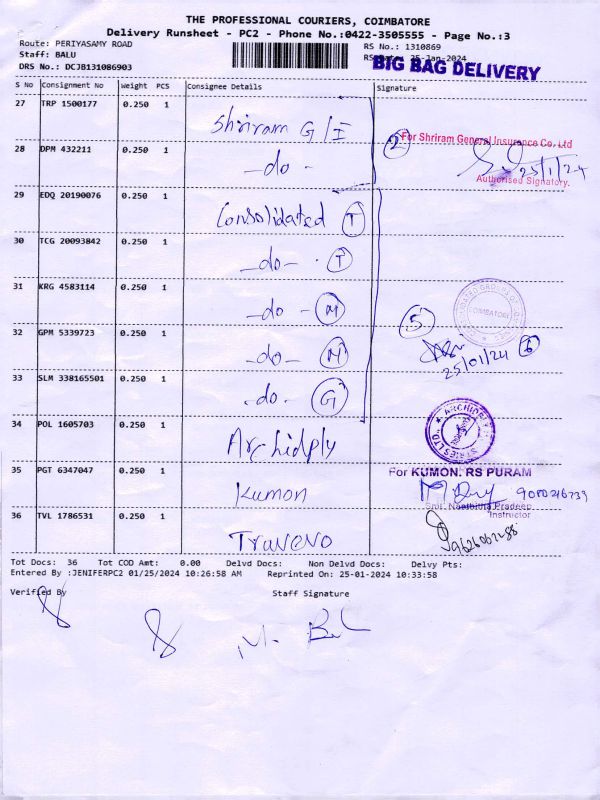 THE PROFESSIONAL COURIERS, COIMBATORE
Delivery Runsheet - PC2 - Phone No.:0422-3505555 - Page No.:3
Route: PERIYASAMY ROAD RS No.: 1310869
Staff: BALU 25-Jan-2024
DRS No.: DCJB131086903 BIG BAG DELIVERY
S No Consignment No Weight PCS Consignee Details Signature
27 TRP 1500177 0.250 1 Shriram G/I
2 For Shriram General Insurance Co. Ltd
28 DPM 432211 0.250 1 -do- 25/1/24
Authorised Signatory.
29 EDQ 20190076 0.250 1 Consolidated T
30 TCG 20093842 0.250 1 -do- T
31 KRG 4583114 0.250 1 -do- M
COIMBATORE
5
32 GPM 5339723 0.250 1 -do- M
25/01/24 6
33 SLM 338165501 0.250 1 -do- G
34 POL 1605703 0.250 1 Archidply
35 PGT 6347047 0.250 1 Kumon
For KUMON. RS PURAM
Smt. Pradeep
Instructor
36 TVL 1786531 0.250 1
Tot Docs: 36 Tot COD Amt: 0.00 Delvd Docs: Non Delvd Docs: Delvy Pts:
Entered By :JENIFERPC2 01/25/2024 10:26:58 AM Reprinted On: 25-01-2024 10:33:58
Verified By Staff Signature